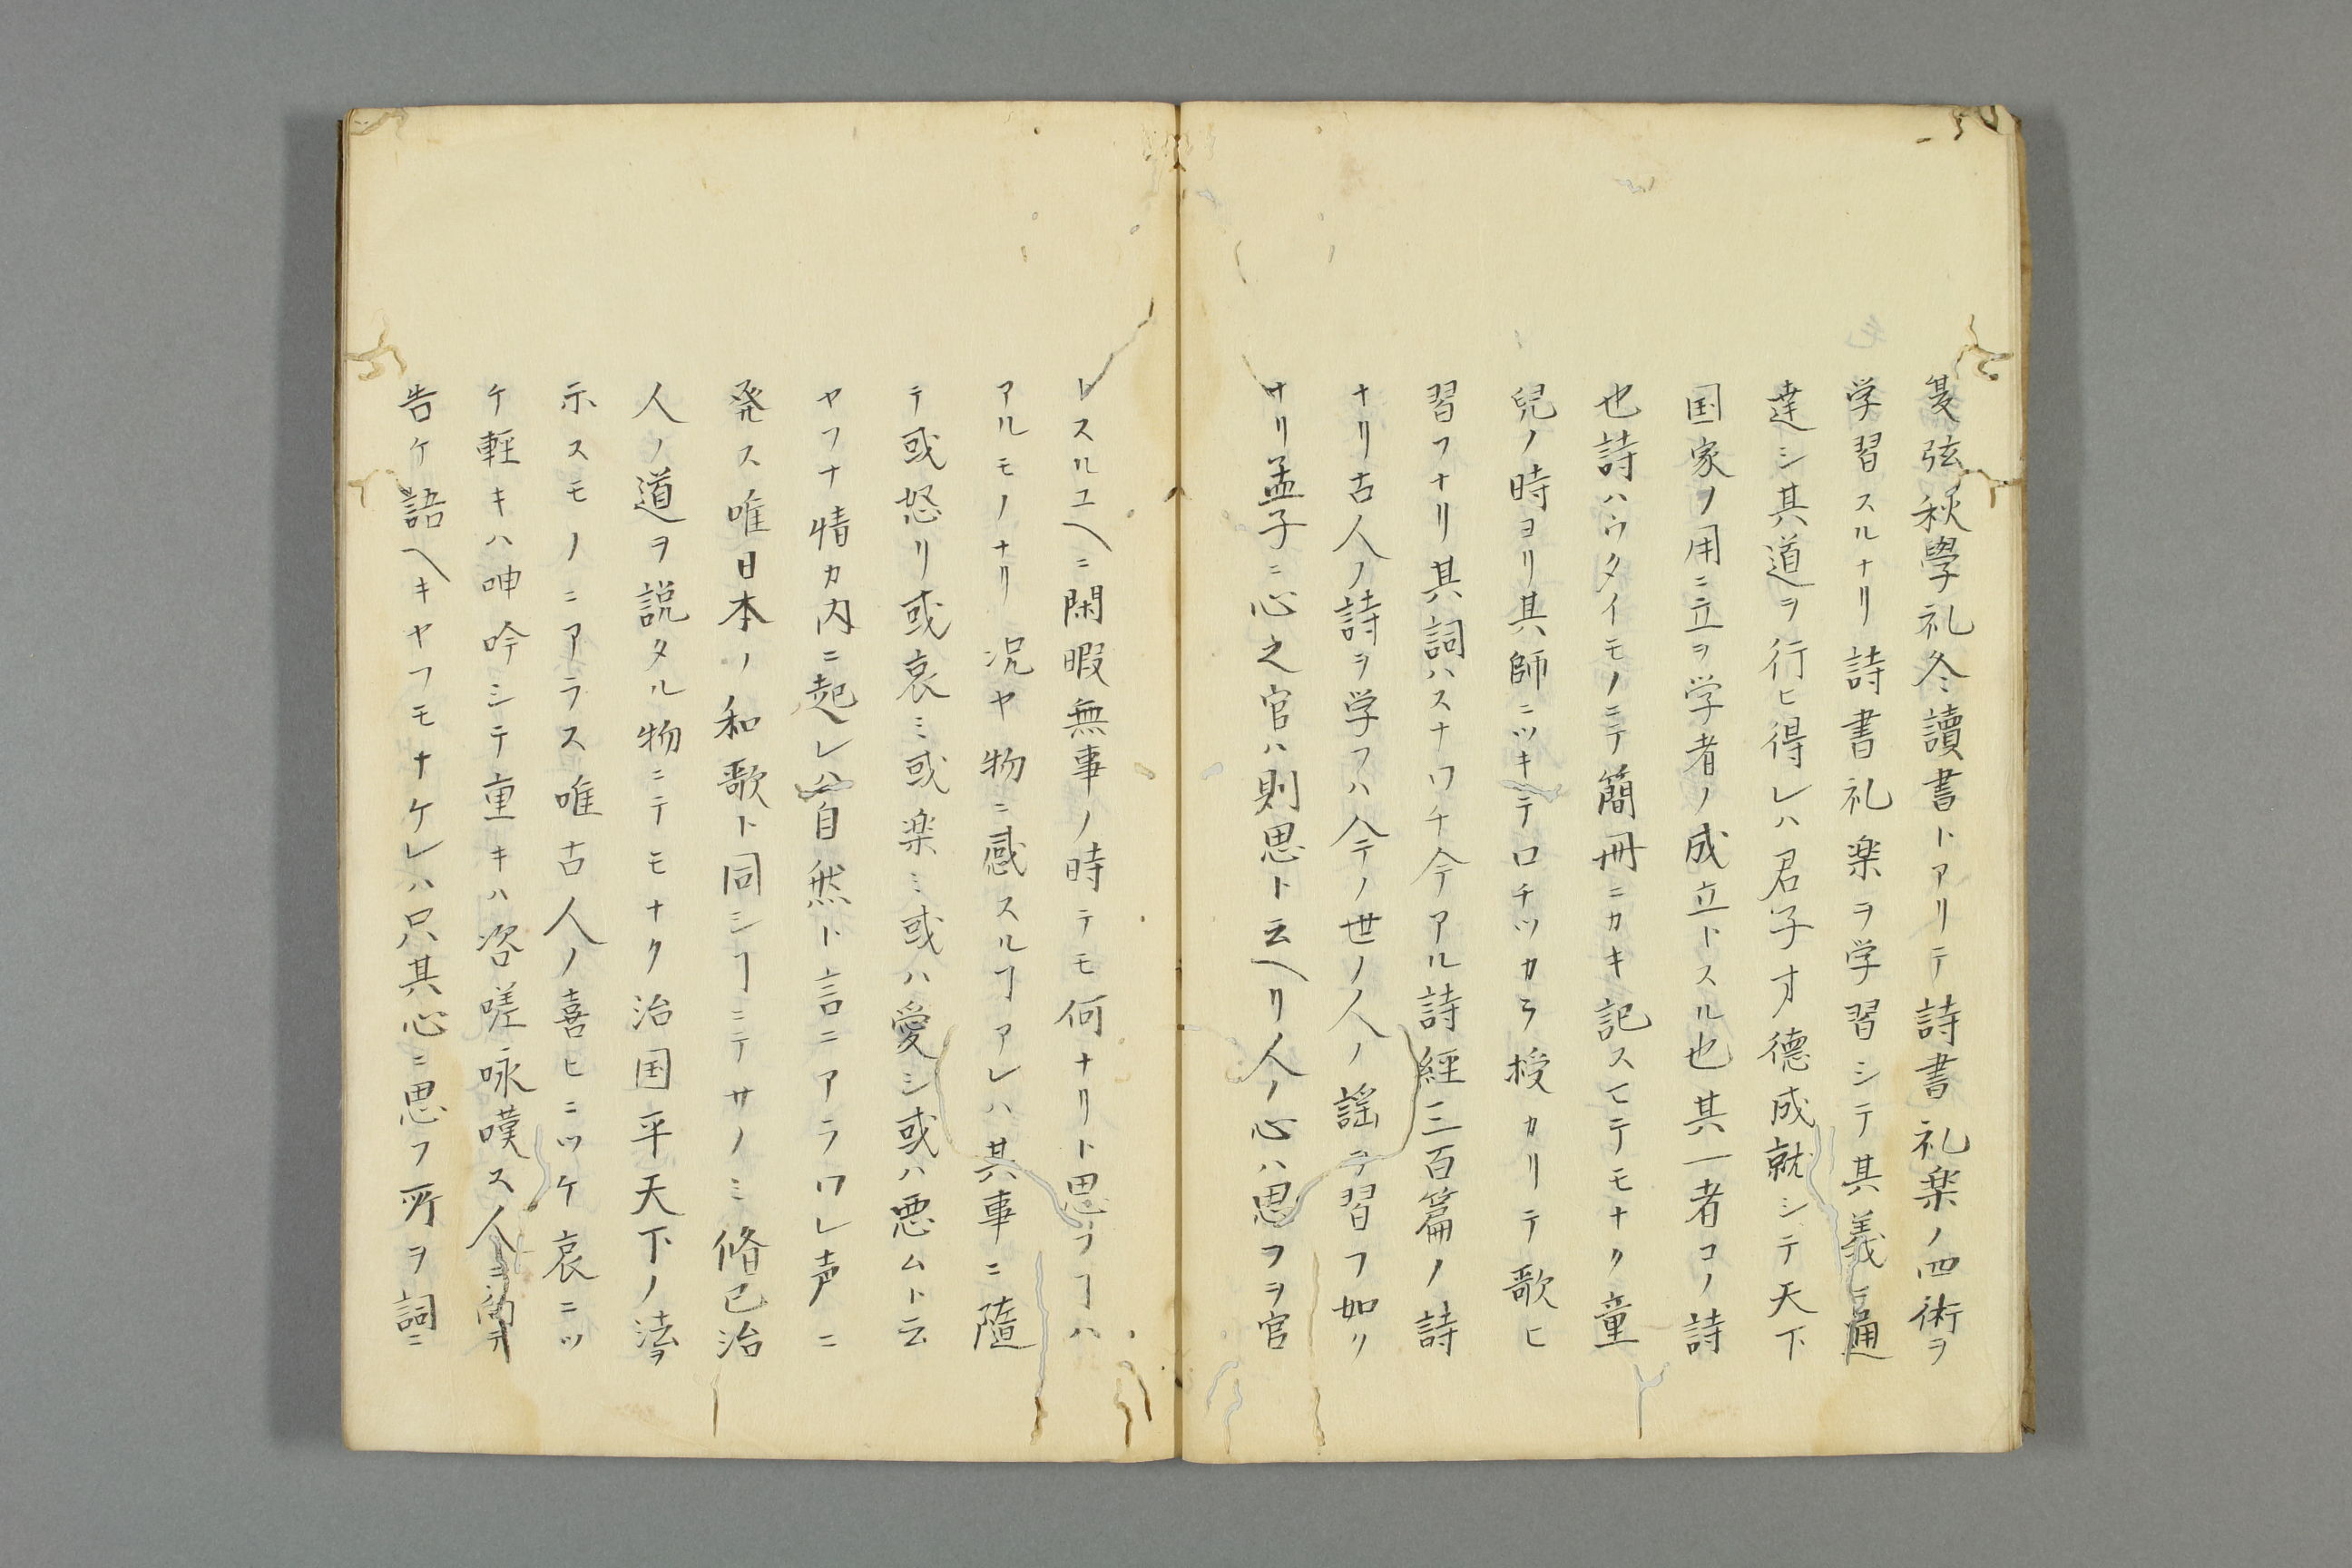 夏弦秋學礼冬讀書トアリテ詩書礼楽ノ四術ヲ
学習スルナリ詩書礼楽ヲ学習シテ其義ニ通
達シ其道ヲ行ヒ得レハ君子才德成就シテ天下
国家ノ用ニ立ヲ学者ノ成立トスル也其一者コノ詩
也詩ハウタイモノニテ簡冊ニカキ記スヒテモナク童
兒ノ時ヨリ其師ニツキテロチツカラ授カリテ歌ヒ
習フナリ其詞ハスナワチ今アル詩經三百篇ノ詩
ナリ古人ノ詩ヲ学フハ今ノ世ノ人ノ謡ヲ習フ如ク
ナリ孟子ニ心之官ハ則思ト云ヘリ人ノ心ハ思フヲ官
トスルユヘニ閑暇無事ノ時テモ何ナリト思フヿハ
アルモノナリ況ヤ物ニ感スルヿアレハ其事ニ隨
テ或怒リ或哀ミ或楽ミ或ハ愛シ或ハ悪ムト云
ヤフナ情カ内ニ起レハ自然ト言ニアラワレ声ニ
発ス唯日本ノ和歌ト同シヿニテサノミ脩己治
人ノ道ヲ説タル物ニテモナク治国平天下ノ法ヲ
示スモノニアラス唯古人ノ喜ヒニツケ哀ニツ
ケ軽キハ呻吟シテ重キハ咨嗟咏嘆ス人ニ向テ
告ケ語ヘキヤフモナケレハ只其心ニ思フ所ヲ詞ニ